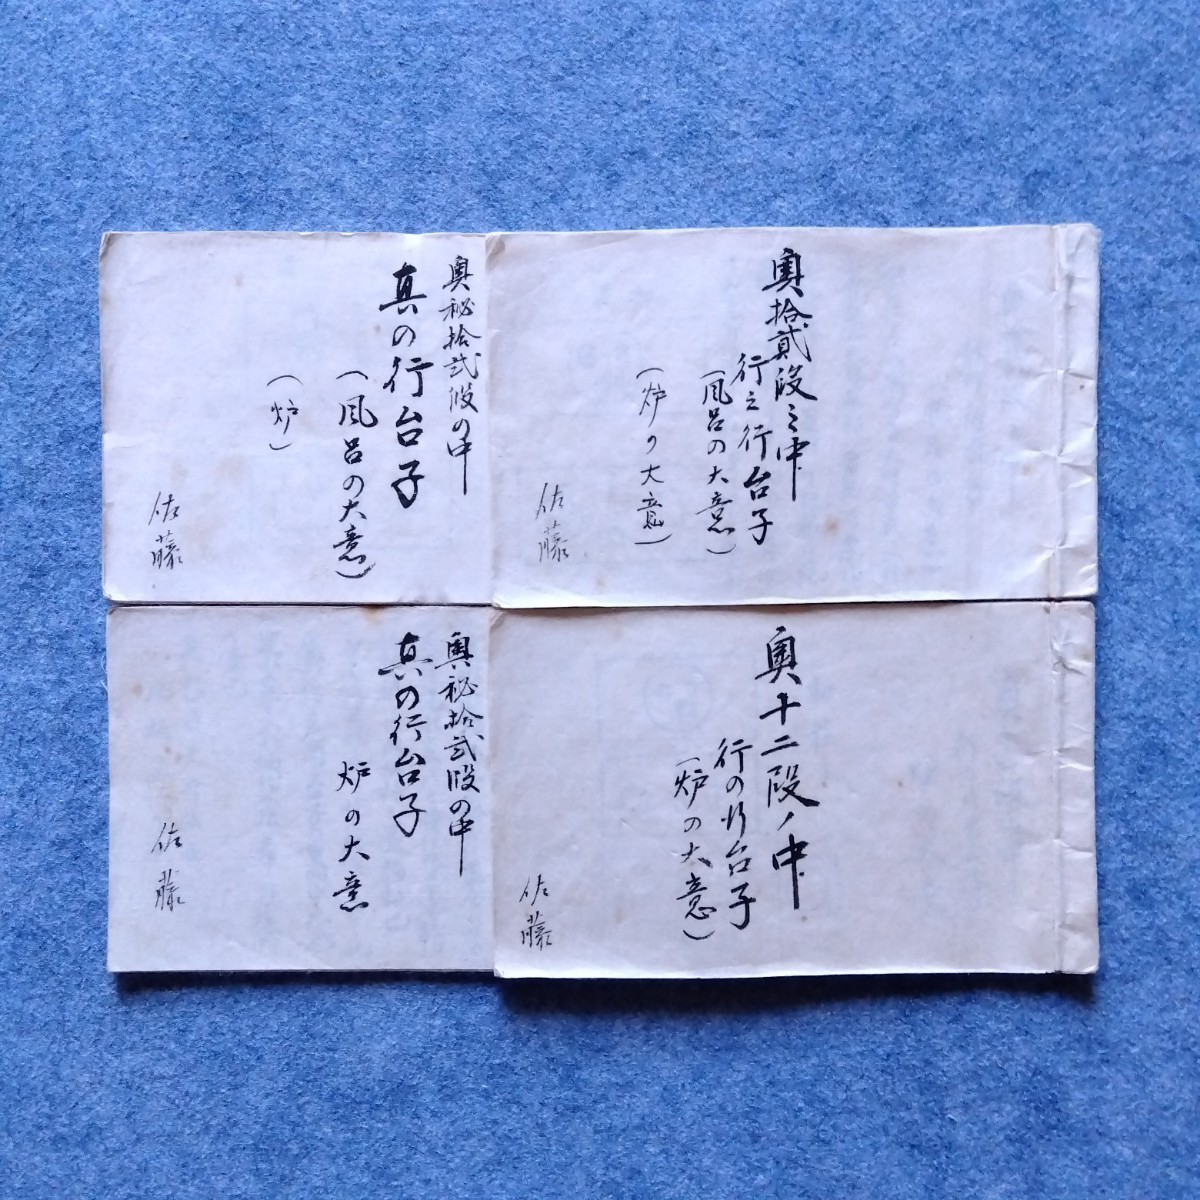 奥拾貳段之中
行之行台子
(風呂の大意)
(炉の大意)
佐藤
奥秘拾弐段の中
真の行台子
(風呂の大意)
(炉)
佐藤
奥十二段ノ中
行の行台子
(炉の大意)
佐藤
奥秘拾弐段の中
真の行台子
炉の大意
佐藤